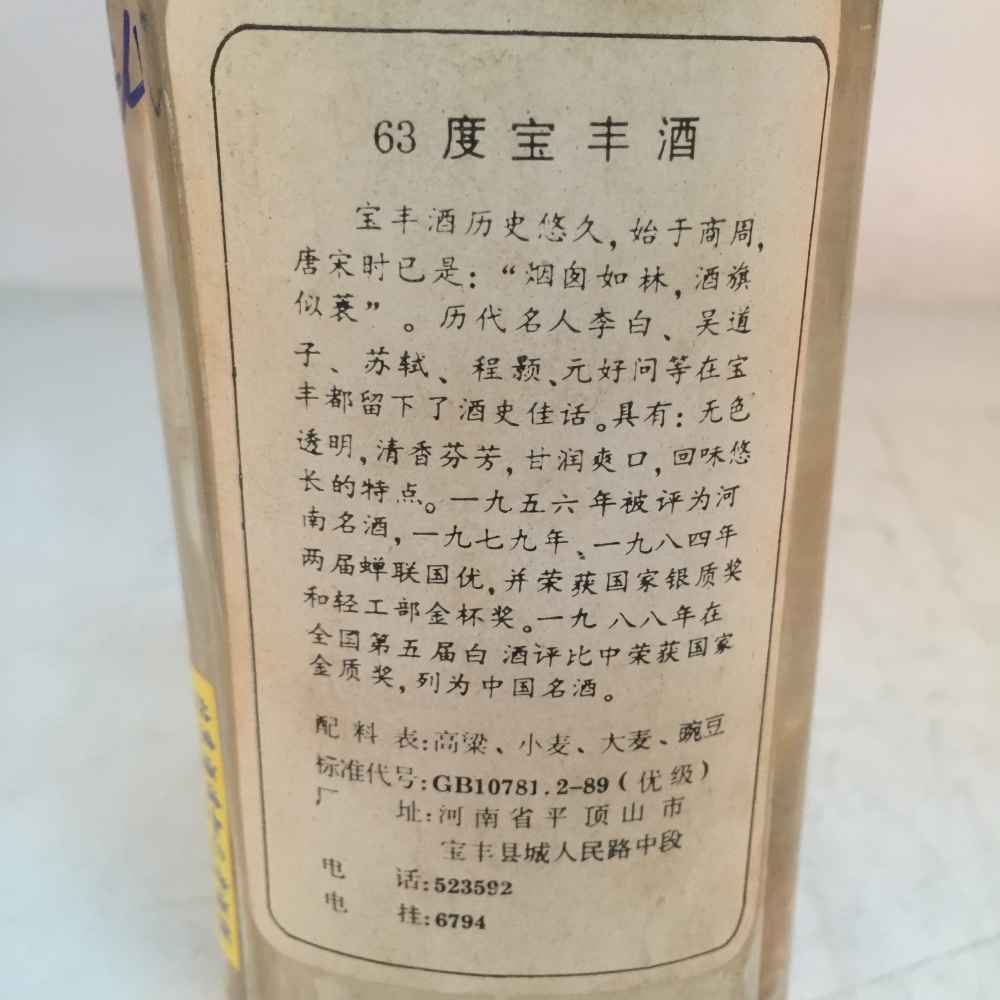 63度宝丰酒
宝丰酒历史悠久，始于商周，
唐宋时已是：“烟囱如林，酒旗
似蓑”。历代名人李白、吴道
子、苏轼、程颢、元好问等在宝
丰都留下了酒史佳话。具有：无色
透明，清香芬芳，甘润爽口，回味悠
长的特点。一九五六年被评为河
南名酒，一九七九年、一九八四年
两届蝉联国优，并荣获国家银质奖
和轻工部金杯奖。一九八八年在
全国第五届白酒评比中荣获国家
金质奖，列为中国名酒。
配料表：高粱、小麦、大麦、豌豆
标准代号：GB10781.2-89（优级）
厂址：河南省平顶山市
宝丰县城人民路中段
电话：523592
电挂：6794